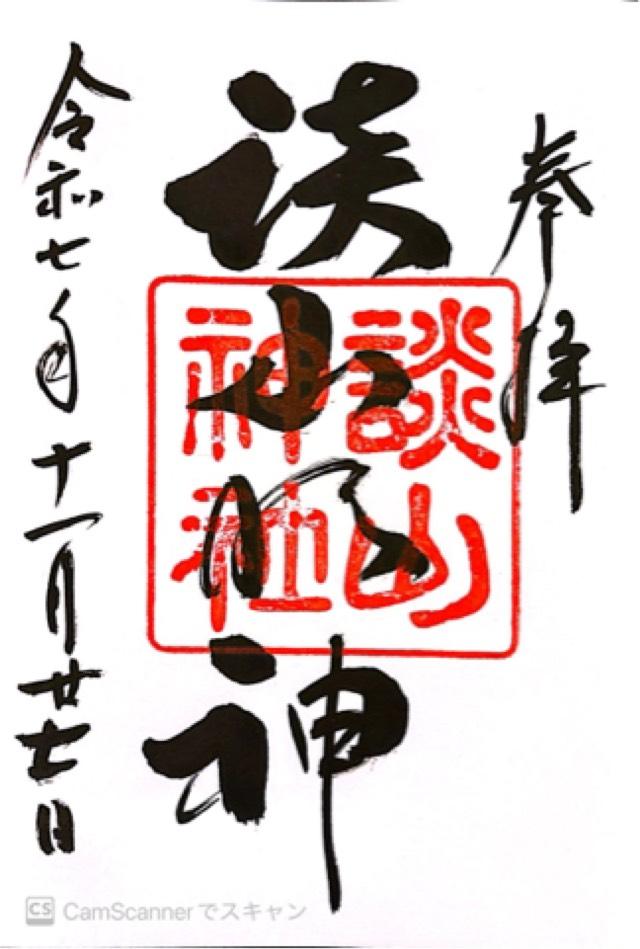 奉拝
談山明神
談山
神社
令和七年十一月廿七日
CS CamScannerでスキャン